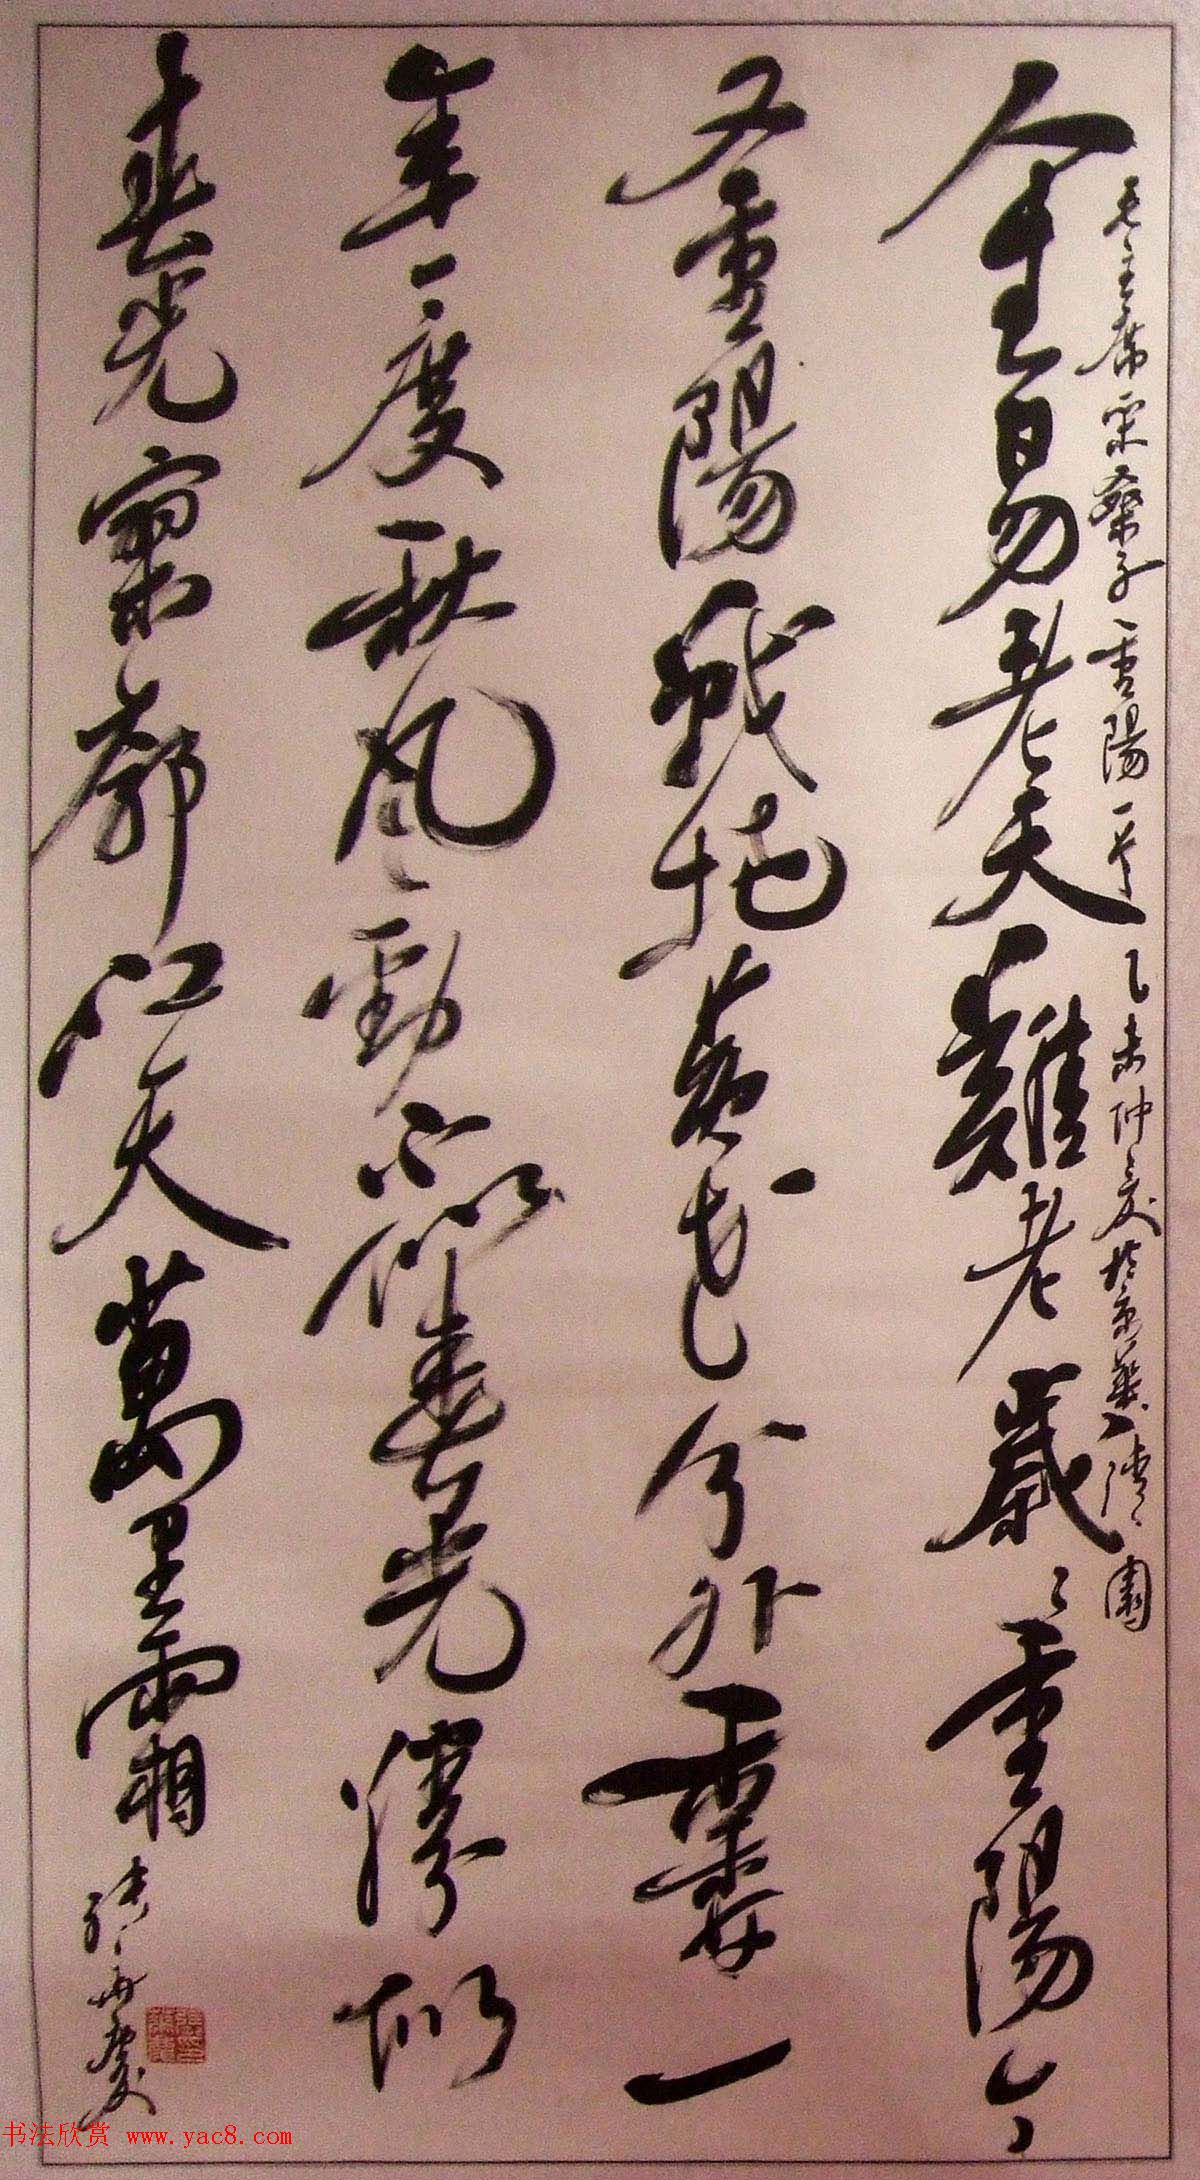 毛主席采桑子重陽一首 乙未仲夏於京華清園
人生易老天難老歲〻重陽今
又重陽戰地黃花分外香一
年一度秋風勁不似春光勝似
春光寥廓江天萬里霜
书法欣赏 www.yac8.com